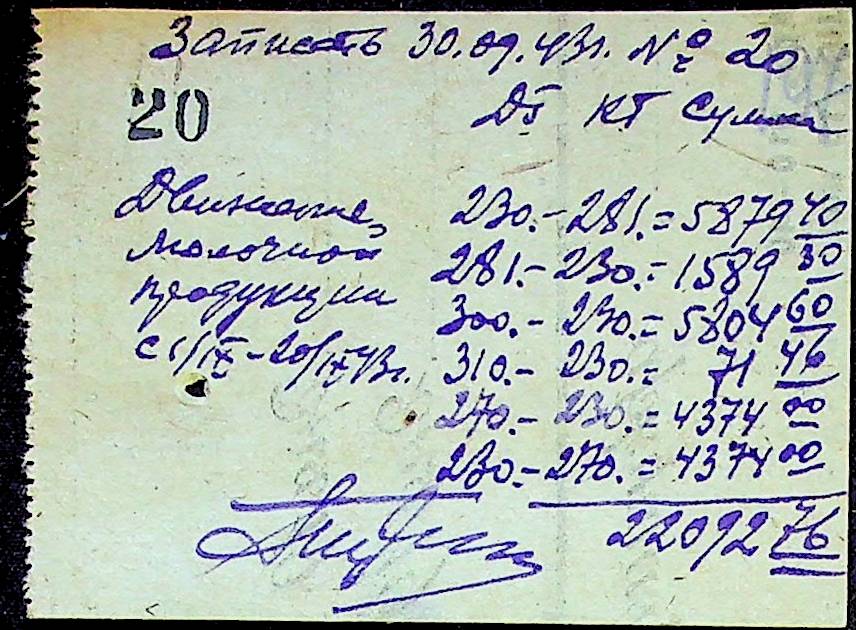 Записать 30.09.43г. № 20
20
Дт Кт Сумма
Движение 230.- 281.= 5879 40
молочной 281.- 230.= 1589 30
продукции 300.- 230.= 5804 60
с 1/IX-20/IX 43г. 310.- 230.= 71 46
270.- 230.= 4374 00
230.- 270.= 4374 00
22092 76